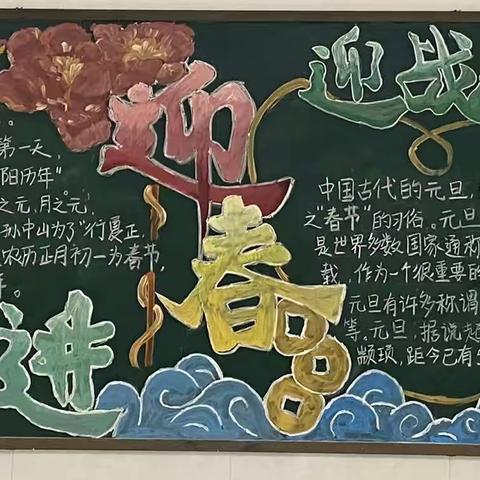 迎
春
迎战
进
第一天,
阳历年"
之元,月之元,
孙中山为了"行夏正
农历正月初一为春节,
年。
中国古代的元旦,
之"春节"的习俗。元旦
是世界多数国家通称
载,作为一个很重要的
元旦有许多称谓
等。元旦,据说起
颛顼,距今已有